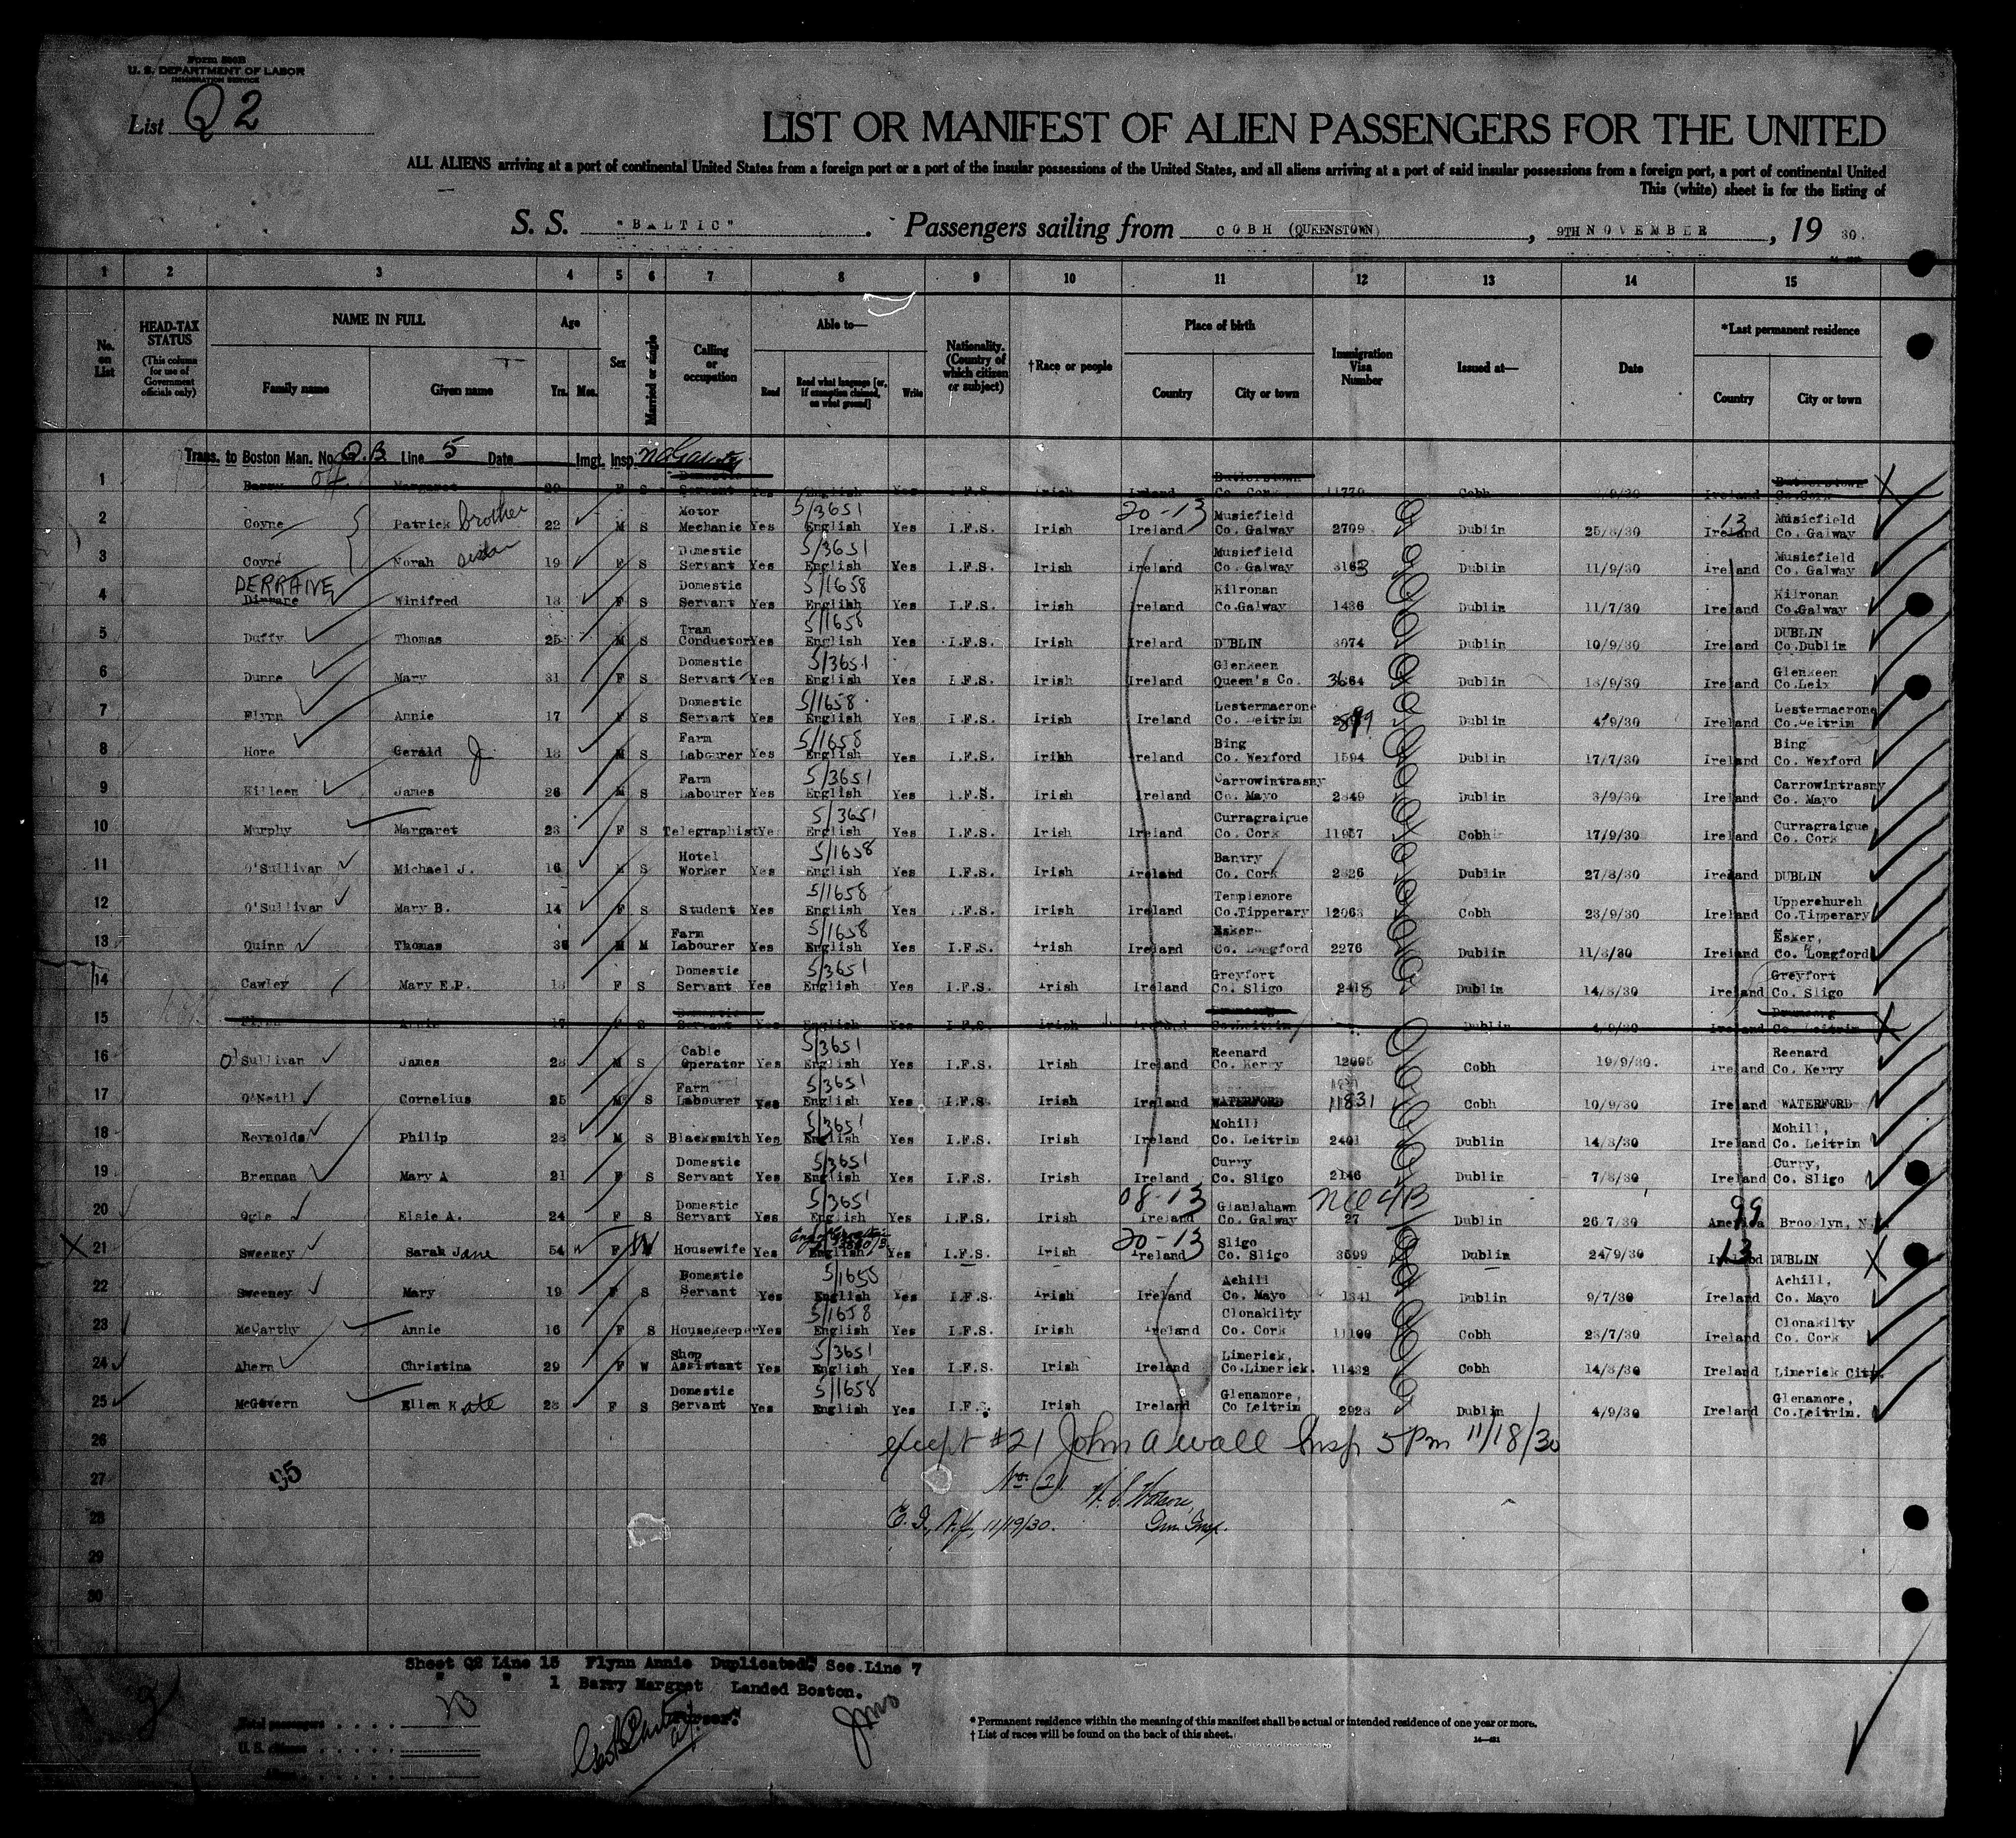 Form 500B
U. S. DEPARTMENT OF LABOR
IMMIGRATION SERVICE
List Q2
LIST OR MANIFEST OF ALIEN PASSENGERS FOR THE UNITED
ALL ALIENS arriving at a port of continental United States from a foreign port or a port of the insular possessions of the United States, and all aliens arriving at a port of said insular possessions from a foreign port, a port of continental United
This (white) sheet is for the listing of
S. S. "BALTIC". Passengers sailing from COBH (QUEENSTOWN), 9TH NOVEMBER, 19 30.
1 2 3 4 5 6 7 8 9 10 11 12 13 14 15
No. on List
HEAD-TAX STATUS (This column for use of Government officials only)
NAME IN FULL Family name Given name
Age Yrs. Mos.
Sex
Married or single
Calling or occupation
Able to— Read Read what language [or, if exemption claimed, on what ground] Write
Nationality. (Country of which citizen or subject)
†Race or people
Place of birth Country City or town
Immigration Visa Number
Issued at—
Date
*Last permanent residence Country City or town
Trans. to Boston Man. No. Q.B Line 5 Date Imgt. Insp.
1 Barry Margaret 20 F S Domestic Servant Yes English Yes I.F.S. Irish Ireland Butlerstown Co. Cork 11770 Cobh Ireland Butlerstown Co.Cork X
2 Coyne Patrick brother 22 M S Motor Mechanic Yes 5/3651 English Yes I.F.S. Irish 20-13 Ireland Musicfield Co. Galway 2709 Dublin 25/8/30 13 Ireland Musicfield Co. Galway
3 Coyne Norah sister 19 F S Domestic Servant Yes 5/3651 English Yes I.F.S. Irish Ireland Musicfield Co. Galway 3163 Dublin 11/9/30 Ireland Musicfield Co. Galway
4 DERRANE Dirrane Winifred 18 F S Domestic Servant Yes 5/1658 English Yes I.F.S. Irish Ireland Kilronan Co.Galway 1436 Dublin 11/7/30 Ireland Kilronan Co.Galway
5 Duffy Thomas 25 M S Tram Conductor Yes 5/1658 English Yes I.F.S. Irish Ireland DUBLIN 3074 Dublin 10/9/30 Ireland DUBLIN Co.Dublin
6 Dunne Mary 31 F S Domestic Servant Yes 5/3651 English Yes I.F.S. Irish Ireland Glenkeen Queen's Co. 3664 Dublin 18/9/30 Ireland Glenkeen Co.Leix
7 Flynn Annie 17 F S Domestic Servant Yes 5/1658 English Yes I.F.S. Irish Ireland Lestermacrone Co. Leitrim Dublin 4/9/30 Ireland Lestermacrone Co.Leitrim
8 Hore Gerald J 18 M S Farm Labourer Yes 5/1658 English Yes I.F.S. Irish Ireland Bing Co. Wexford 1594 Dublin 17/7/30 Ireland Bing Co. Wexford
9 Killeen James 26 M S Farm Labourer Yes 5/3651 English Yes I.F.S. Irish Ireland Carrowintrasny Co. Mayo 2849 Dublin 3/9/30 Ireland Carrowintrasny Co. Mayo
10 Murphy Margaret 23 F S Telegraphist Yes 5/3651 English Yes I.F.S. Irish Ireland Curragraigue Co. Cork 11957 Cobh 17/9/30 Ireland Curragraigue Co. Cork
11 O'Sullivan Michael J. 16 M S Hotel Worker Yes 5/1658 English Yes I.F.S. Irish Ireland Bantry Co. Cork 2826 Dublin 27/8/30 Ireland DUBLIN
12 O'Sullivan Mary B. 14 F S Student Yes 5/1658 English Yes I.F.S. Irish Ireland Templemore Co.Tipperary 12063 Cobh 23/9/30 Ireland Upperchurch Co.Tipperary
13 Quinn Thomas M M Farm Labourer Yes 5/1658 English Yes I.F.S. Irish Ireland Esker Co. Longford 2276 Dublin 11/8/30 Ireland Esker, Co. Longford
14 Cawley Mary E.P. 18 F S Domestic Servant Yes 5/3651 English Yes I.F.S. Irish Ireland Greyfort Co. Sligo 2418 Dublin 14/8/30 Ireland Greyfort Co. Sligo
15 Flynn Annie 17 F S Domestic Servant Yes English Yes I.F.S. Irish Ireland Co.Leitrim Dublin 4/9/30 Ireland Co. Leitrim X
16 O'Sullivan James 28 M S Cable Operator Yes 5/3651 English Yes I.F.S. Irish Ireland Reenard Co. Kerry 12005 Cobh 19/9/30. Ireland Reenard Co. Kerry
17 O'Neill Cornelius 25 M S Farm Labourer Yes 5/3651 English Yes I.F.S. Irish Ireland WATERFORD 11831 Cobh 10/9/30 Ireland WATERFORD
18 Reynolds Philip 28 M S Blacksmith Yes 5/3651 English Yes I.F.S. Irish Ireland Mohill Co. Leitrim 2401 Dublin 14/8/30 Ireland Mohill, Co. Leitrim
19 Brennan Mary A 21 F S Domestic Servant Yes 5/3651 English Yes I.F.S. Irish Ireland Curry Co. Sligo 2146 Dublin 7/8/30 Ireland Curry, Co. Sligo
20 Ogle Elsie A. 24 F S Domestic Servant Yes 5/3651 English Yes I.F.S. Irish 08-13 Ireland Glanlahawn Co. Galway 27 Dublin 26/7/30 99 America Brooklyn, N.
21 Sweeney Sarah Jane 54 F W Housewife Yes English Yes I.F.S. Irish 20-13 Ireland Sligo Co. Sligo 3599 Dublin 24/9/30 13 Ireland DUBLIN X
22 Sweeney Mary 19 F S Domestic Servant Yes 5/1658 English Yes I.F.S. Irish Ireland Achill Co. Mayo 1341 Dublin 9/7/30 Ireland Achill, Co. Mayo
23 McCarthy Annie 16 F S Housekeeper Yes 5/1658 English Yes I.F.S. Irish Ireland Clonakilty Co. Cork 11100 Cobh 23/7/30 Ireland Clonakilty Co. Cork
24 Ahern Christina 29 F W Shop Assistant Yes 5/3651 English Yes I.F.S. Irish Ireland Limerick, Co.Limerick. 11432 Cobh 14/8/30 Ireland Limerick City
25 McGovern Ellen Kate 28 F S Domestic Servant Yes 5/1658 English Yes I.F.S. Irish Ireland Glenamore, Co Leitrim 2928 Dublin 4/9/30 Ireland Glenamore, Co.Leitrim.
26 except #21 John A Wall Insp 5 Pm 11/18/30
27 95 No. (21)
28 E. I., N.Y., 11/19/30. Imm. Insp.
29
30
Sheet Q2 Line 15 Flynn Annie Duplicated. See Line 7
" " 1 Barry Margret Landed Boston.
Total passengers 23
U. S. citizens
Aliens
Purser.
* Permanent residence within the meaning of this manifest shall be actual or intended residence of one year or more.
† List of races will be found on the back of this sheet.